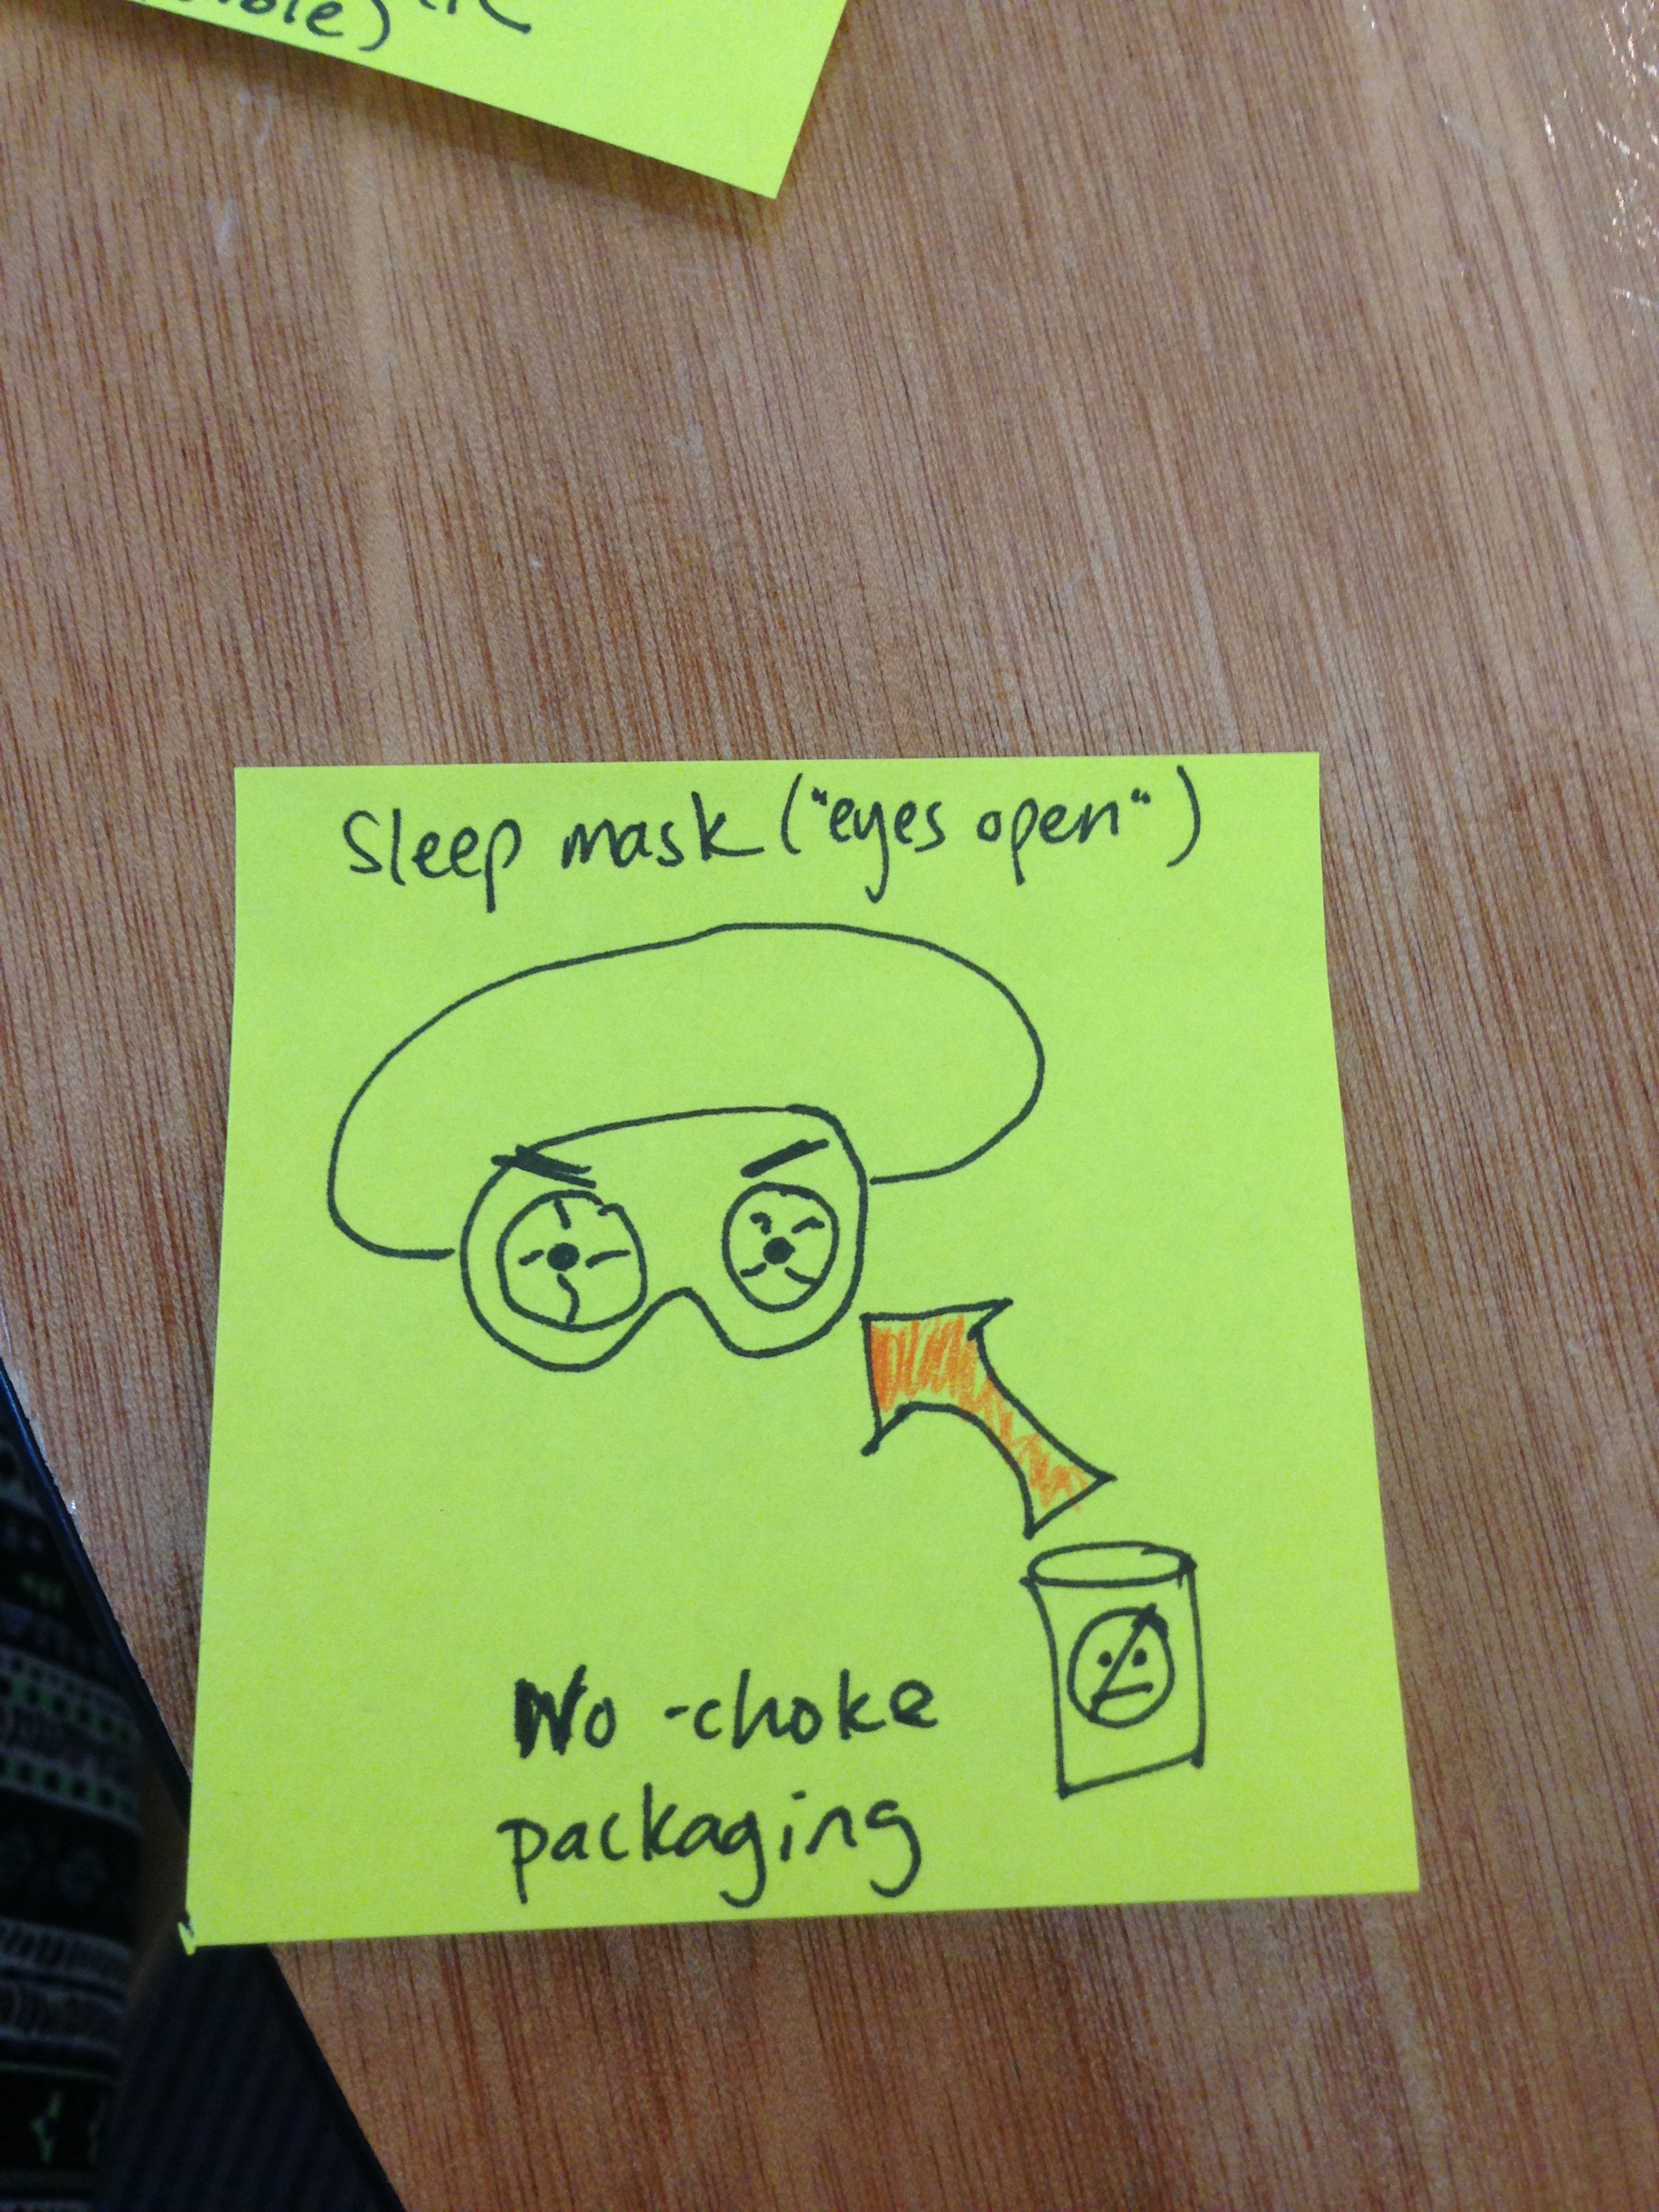 Sleep mask ("eyes open")
No-choke
packaging